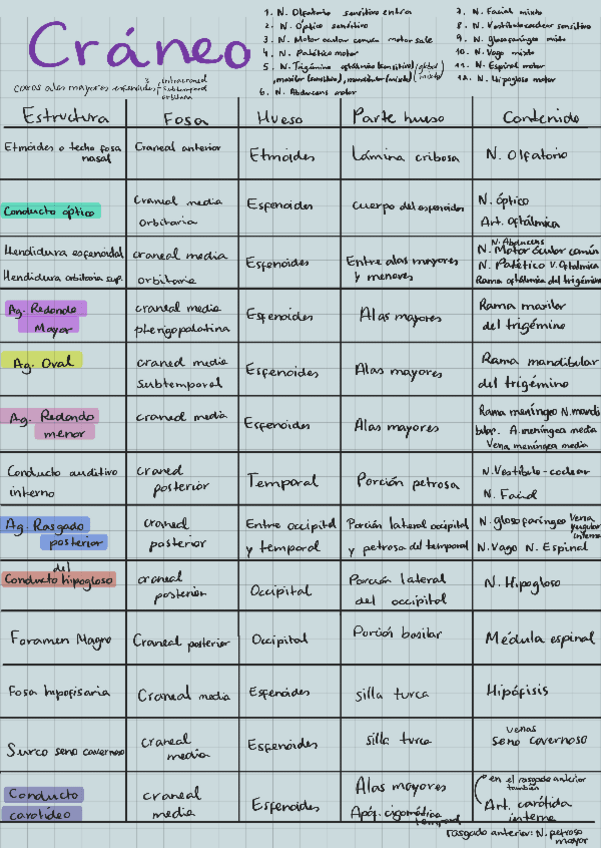 Cráneo
1. N. Olfatorio sensitivo entra
2. N. Óptico sensitivo
3. N. Motor ocular comun motor sale
4. N. Patético motor
5. N. Trigémino oftálmico (sensitivo)
maxilar (sensitivo), mandibular (mixto)
6. N. Abducens motor
7. N. Facial mixto
8. N. Vestíbulo coclear sensitivo
9. N. glosofaríngeo mixto
10. N. Vago mixto
11. N. Espinal motor
12. N. Hipogloso motor
caras alas mayores esfenoides
intracraneal
subtemporal
orbitaria
Estructura Fosa Hueso Parte hueso Contenido
Etmóides o techo fosa nasal Craneal anterior Etmóides Lámina cribosa N. Olfatorio
Conducto óptico Craneal media orbitaria Esfenoides cuerpo del esfenoides N. óptico Art. oftálmica
Hendidura esfenoidal Hendidura orbitaria sup. craneal media orbitaria Esfenoides Entre alas mayores y menores N. Abducens N. Motor ócular común N. Patético V. Oftalmica Rama oftálmica del trigémino
Ag. Redondo Mayor craneal media pterigopalatina Esfenoides Alas mayores Rama maxilar del trigémino
Ag. Oval craneal media subtemporal Esfenoides Alas mayores Rama mandibular del trigémino
Ag. Redondo menor craneal media Esfenoides Alas mayores Rama meníngea N. mandibular. A. meníngea media Vena meníngea media
Conducto auditivo interno craneal posterior Temporal Porción petrosa N. Vestíbulo-coclear N. Facial
Ag. Rasgado posterior craneal posterior Entre occipital y temporal Porción lateral occipital y petrosa del temporal N. glosofaríngeo Vena yugular interna N. Vago N. Espinal
Conducto del hipogloso craneal posterior Occipital Porción lateral del occipital N. Hipogloso
Foramen Magno Craneal posterior Occipital Porción basilar Médula espinal
Fosa hipofisaria Craneal media Esfenoides silla turca Hipófisis
Surco seno cavernoso craneal media Esfenoides silla turca venas seno cavernoso
Conducto carotídeo craneal media Esfenoides Alas mayores Apóf. cigomática temporal en el rasgado anterior también Art. carótida interna
rasgado anterior: N. petroso mayor